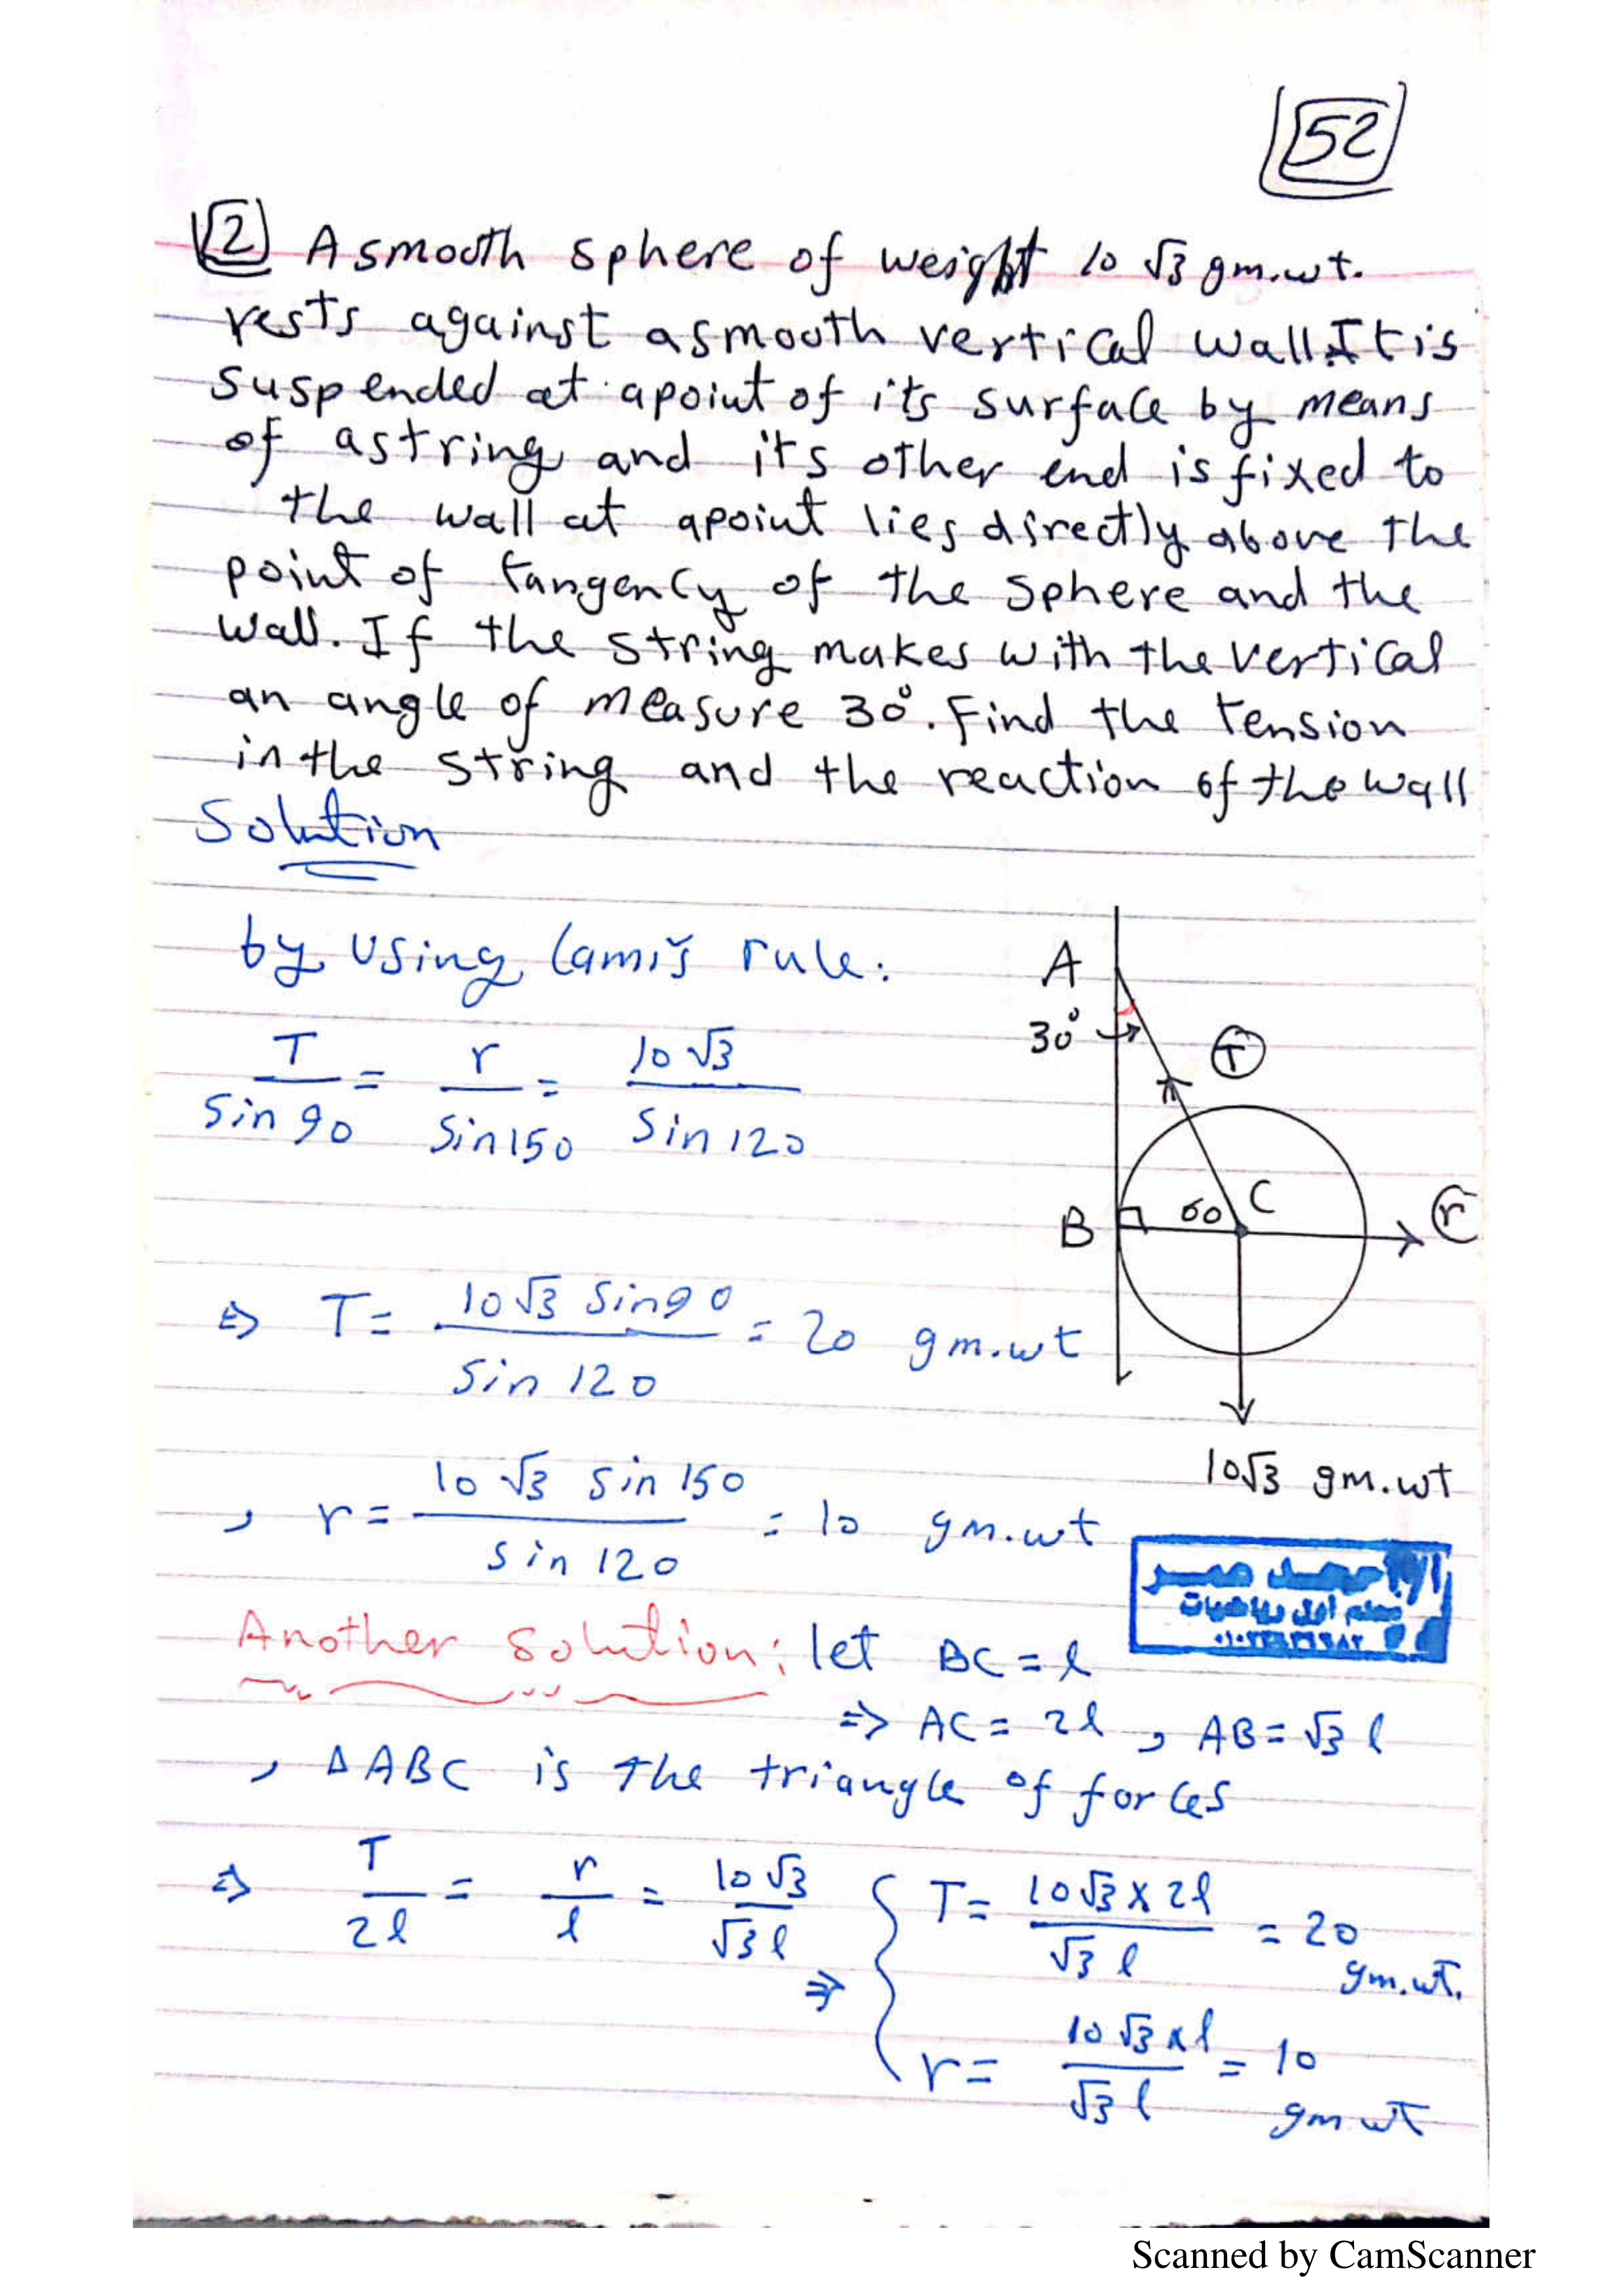 52
2 A smooth sphere of weight 10 √3 gm.wt.
rests against a smooth vertical wall. It is
suspended at a point of its surface by means
of a string and its other end is fixed to
the wall at a point lies directly above the
point of tangency of the sphere and the
wall. If the string makes with the vertical
an angle of measure 30°. Find the tension
in the string and the reaction of the wall
Solution
by using lami's rule:
T / sin 90 = r / sin 150 = 10 √3 / sin 120
A
30°
T
B
60
C
r
⇒ T = 10 √3 sin 90 / sin 120 = 20 gm.wt
10√3 gm.wt
, r = 10 √3 sin 150 / sin 120 = 10 gm.wt
أحمد عمر
معلم أول رياضيات
Another solution: let BC = l
⇒ AC = 2l , AB = √3 l
, Δ ABC is the triangle of forces
⇒ T / 2l = r / l = 10 √3 / √3 l ⇒ { T = 10 √3 x 2l / √3 l = 20 gm.wt.
r = 10 √3 x l / √3 l = 10 gm wt
Scanned by CamScanner